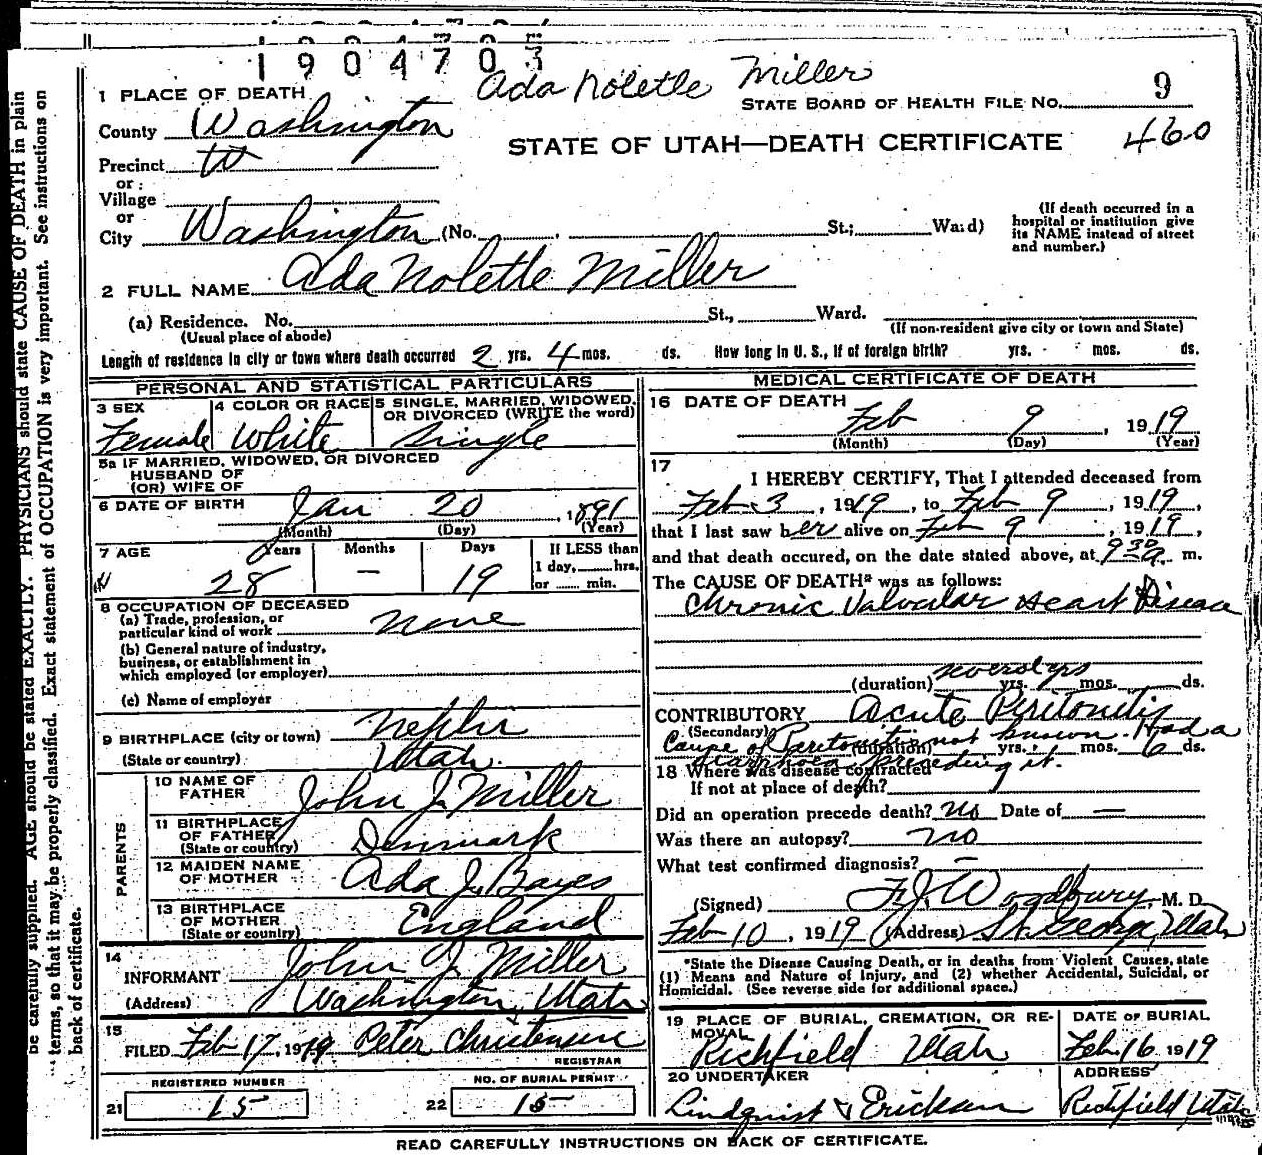 1904703
Ada Nolette Miller
1 PLACE OF DEATH
STATE BOARD OF HEALTH FILE No. 9
County Washington
STATE OF UTAH—DEATH CERTIFICATE 460
Precinct W
or
Village
or
City Washington (No. St.; Ward)
(If death occurred in a hospital or institution give its NAME instead of street and number.)
2 FULL NAME Ada Nolette Miller
(a) Residence. No. St., Ward.
(Usual place of abode)
(If non-resident give city or town and State)
Length of residence in city or town where death occurred 2 yrs. 4 mos. ds. How long in U. S., if of foreign birth? yrs. mos. ds.
PERSONAL AND STATISTICAL PARTICULARS
3 SEX 4 COLOR OR RACE 5 SINGLE, MARRIED, WIDOWED, OR DIVORCED (WRITE the word)
Female White Single
5a IF MARRIED, WIDOWED, OR DIVORCED
HUSBAND OF
(OR) WIFE OF
6 DATE OF BIRTH Jan 20, 1891
(Month) (Day) (Year)
7 AGE Years Months Days If LESS than
1 day, hrs.
28 — 19 or min.
8 OCCUPATION OF DECEASED
(a) Trade, profession, or
particular kind of work none
(b) General nature of industry,
business, or establishment in
which employed (or employer)
(c) Name of employer
9 BIRTHPLACE (city or town) Nephi
(State or country) Utah
PARENTS
10 NAME OF FATHER John J. Miller
11 BIRTHPLACE OF FATHER (State or country) Denmark
12 MAIDEN NAME OF MOTHER Ada J. Bayes
13 BIRTHPLACE OF MOTHER (State or country) England
14
INFORMANT John J. Miller
(Address) Washington, Utah
15
FILED Feb 17, 1919 Peter Christensen
REGISTRAR
REGISTERED NUMBER NO. OF BURIAL PERMIT
21 15 22 15
MEDICAL CERTIFICATE OF DEATH
16 DATE OF DEATH
Feb 9, 1919
(Month) (Day) (Year)
17
I HEREBY CERTIFY, That I attended deceased from
Feb 3, 1919, to Feb 9, 1919,
that I last saw her alive on Feb 9, 1919,
and that death occured, on the date stated above, at 9 30 a m.
The CAUSE OF DEATH* was as follows:
Chronic Valvular Heart Disease
(duration) several yrs. mos. ds.
CONTRIBUTORY Acute Peritonitis
(Secondary)
Cause of Peritonitis not known. Had a
(duration) yrs. mos. 6 ds.
diarrhoea preceding it.
18 Where was disease contracted
If not at place of death?
Did an operation precede death? No Date of —
Was there an autopsy? no
What test confirmed diagnosis? —
(Signed) F. J. Woodbury, M. D.
Feb 10, 1919 (Address) St. George, Utah
*State the Disease Causing Death, or in deaths from Violent Causes, state
(1) Means and Nature of Injury, and (2) whether Accidental, Suicidal, or
Homicidal. (See reverse side for additional space.)
19 PLACE OF BURIAL, CREMATION, OR REMOVAL DATE OF BURIAL
Richfield Utah Feb. 16 1919
20 UNDERTAKER ADDRESS
Lindquist & Erickson Richfield, Utah
READ CAREFULLY INSTRUCTIONS ON BACK OF CERTIFICATE.
be carefully supplied. AGE should be stated EXACTLY. PHYSICIANS should state CAUSE OF DEATH in plain
terms, so that it may be properly classified. Exact statement of OCCUPATION is very important. See instructions on
back of certificate.